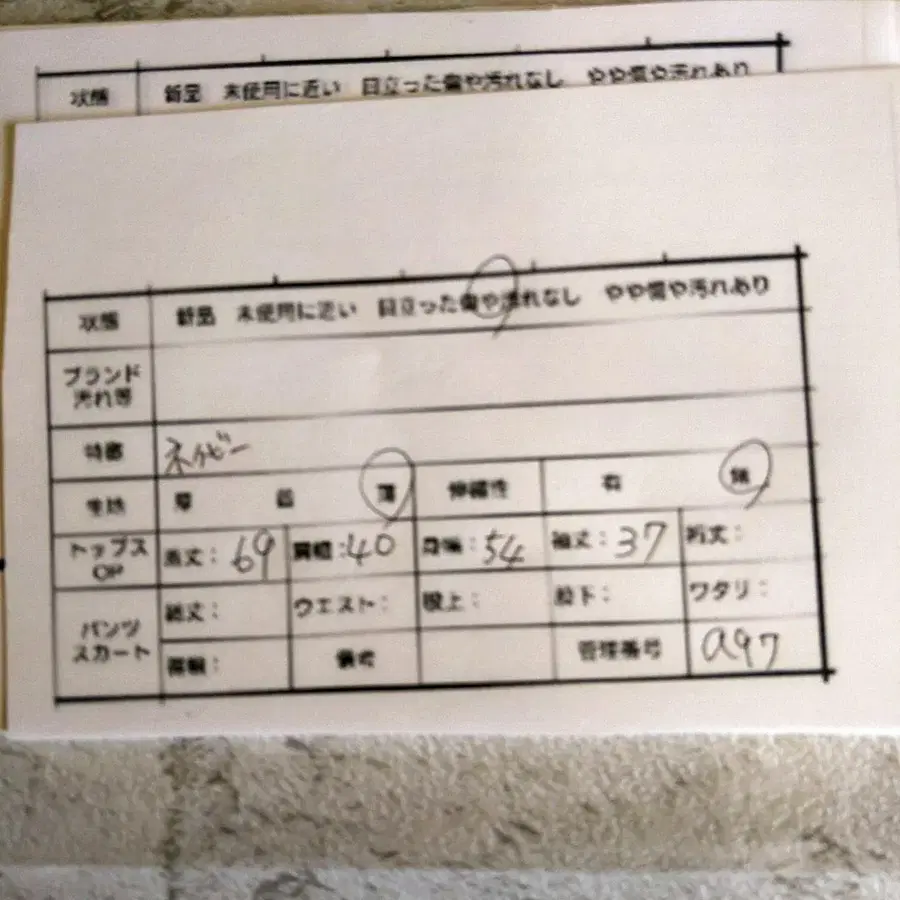 状態 新品 未使用に近い 目立った傷や汚れなし やや傷や汚れあり
状態 新品 未使用に近い 目立った傷や汚れなし やや傷や汚れあり
ブランド
汚れ等
特徴 ネイビー
生地 厚 普 薄 伸縮性 有 無
トップス
OP
着丈: 69 肩幅: 40 身幅: 54 袖丈: 37 裄丈:
パンツ
スカート
総丈: ウエスト: 股上: 股下: ワタリ:
裾幅: 備考 管理番号 a97